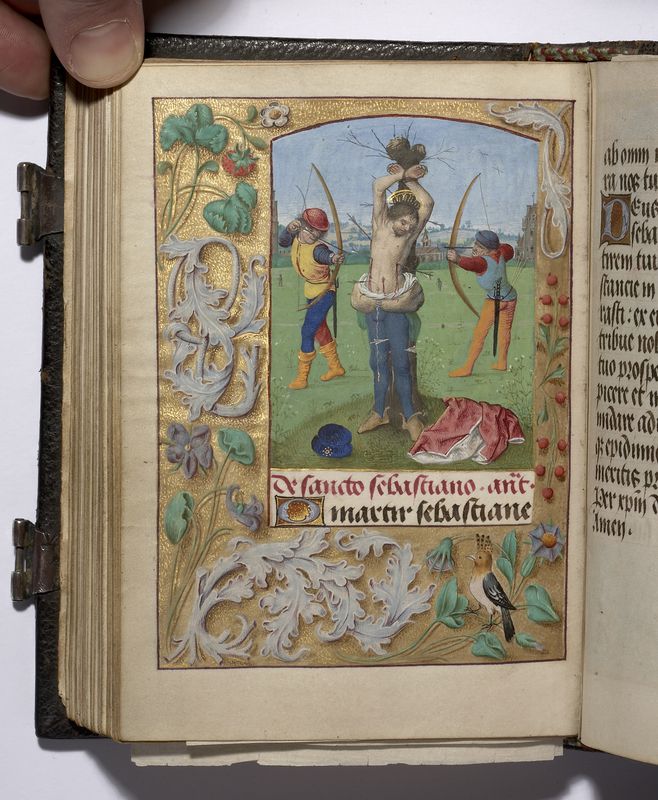 de sancto sebastiano · añt·
O martir sebastiane
ab omni
ra nos tu
Deus
seba
tirem tuu
stancie in
rasti : ex e
tribue nob
tuo prospe
picere et
mūdare ad
epidimie
meritis
Per xp̄m
Amen ·